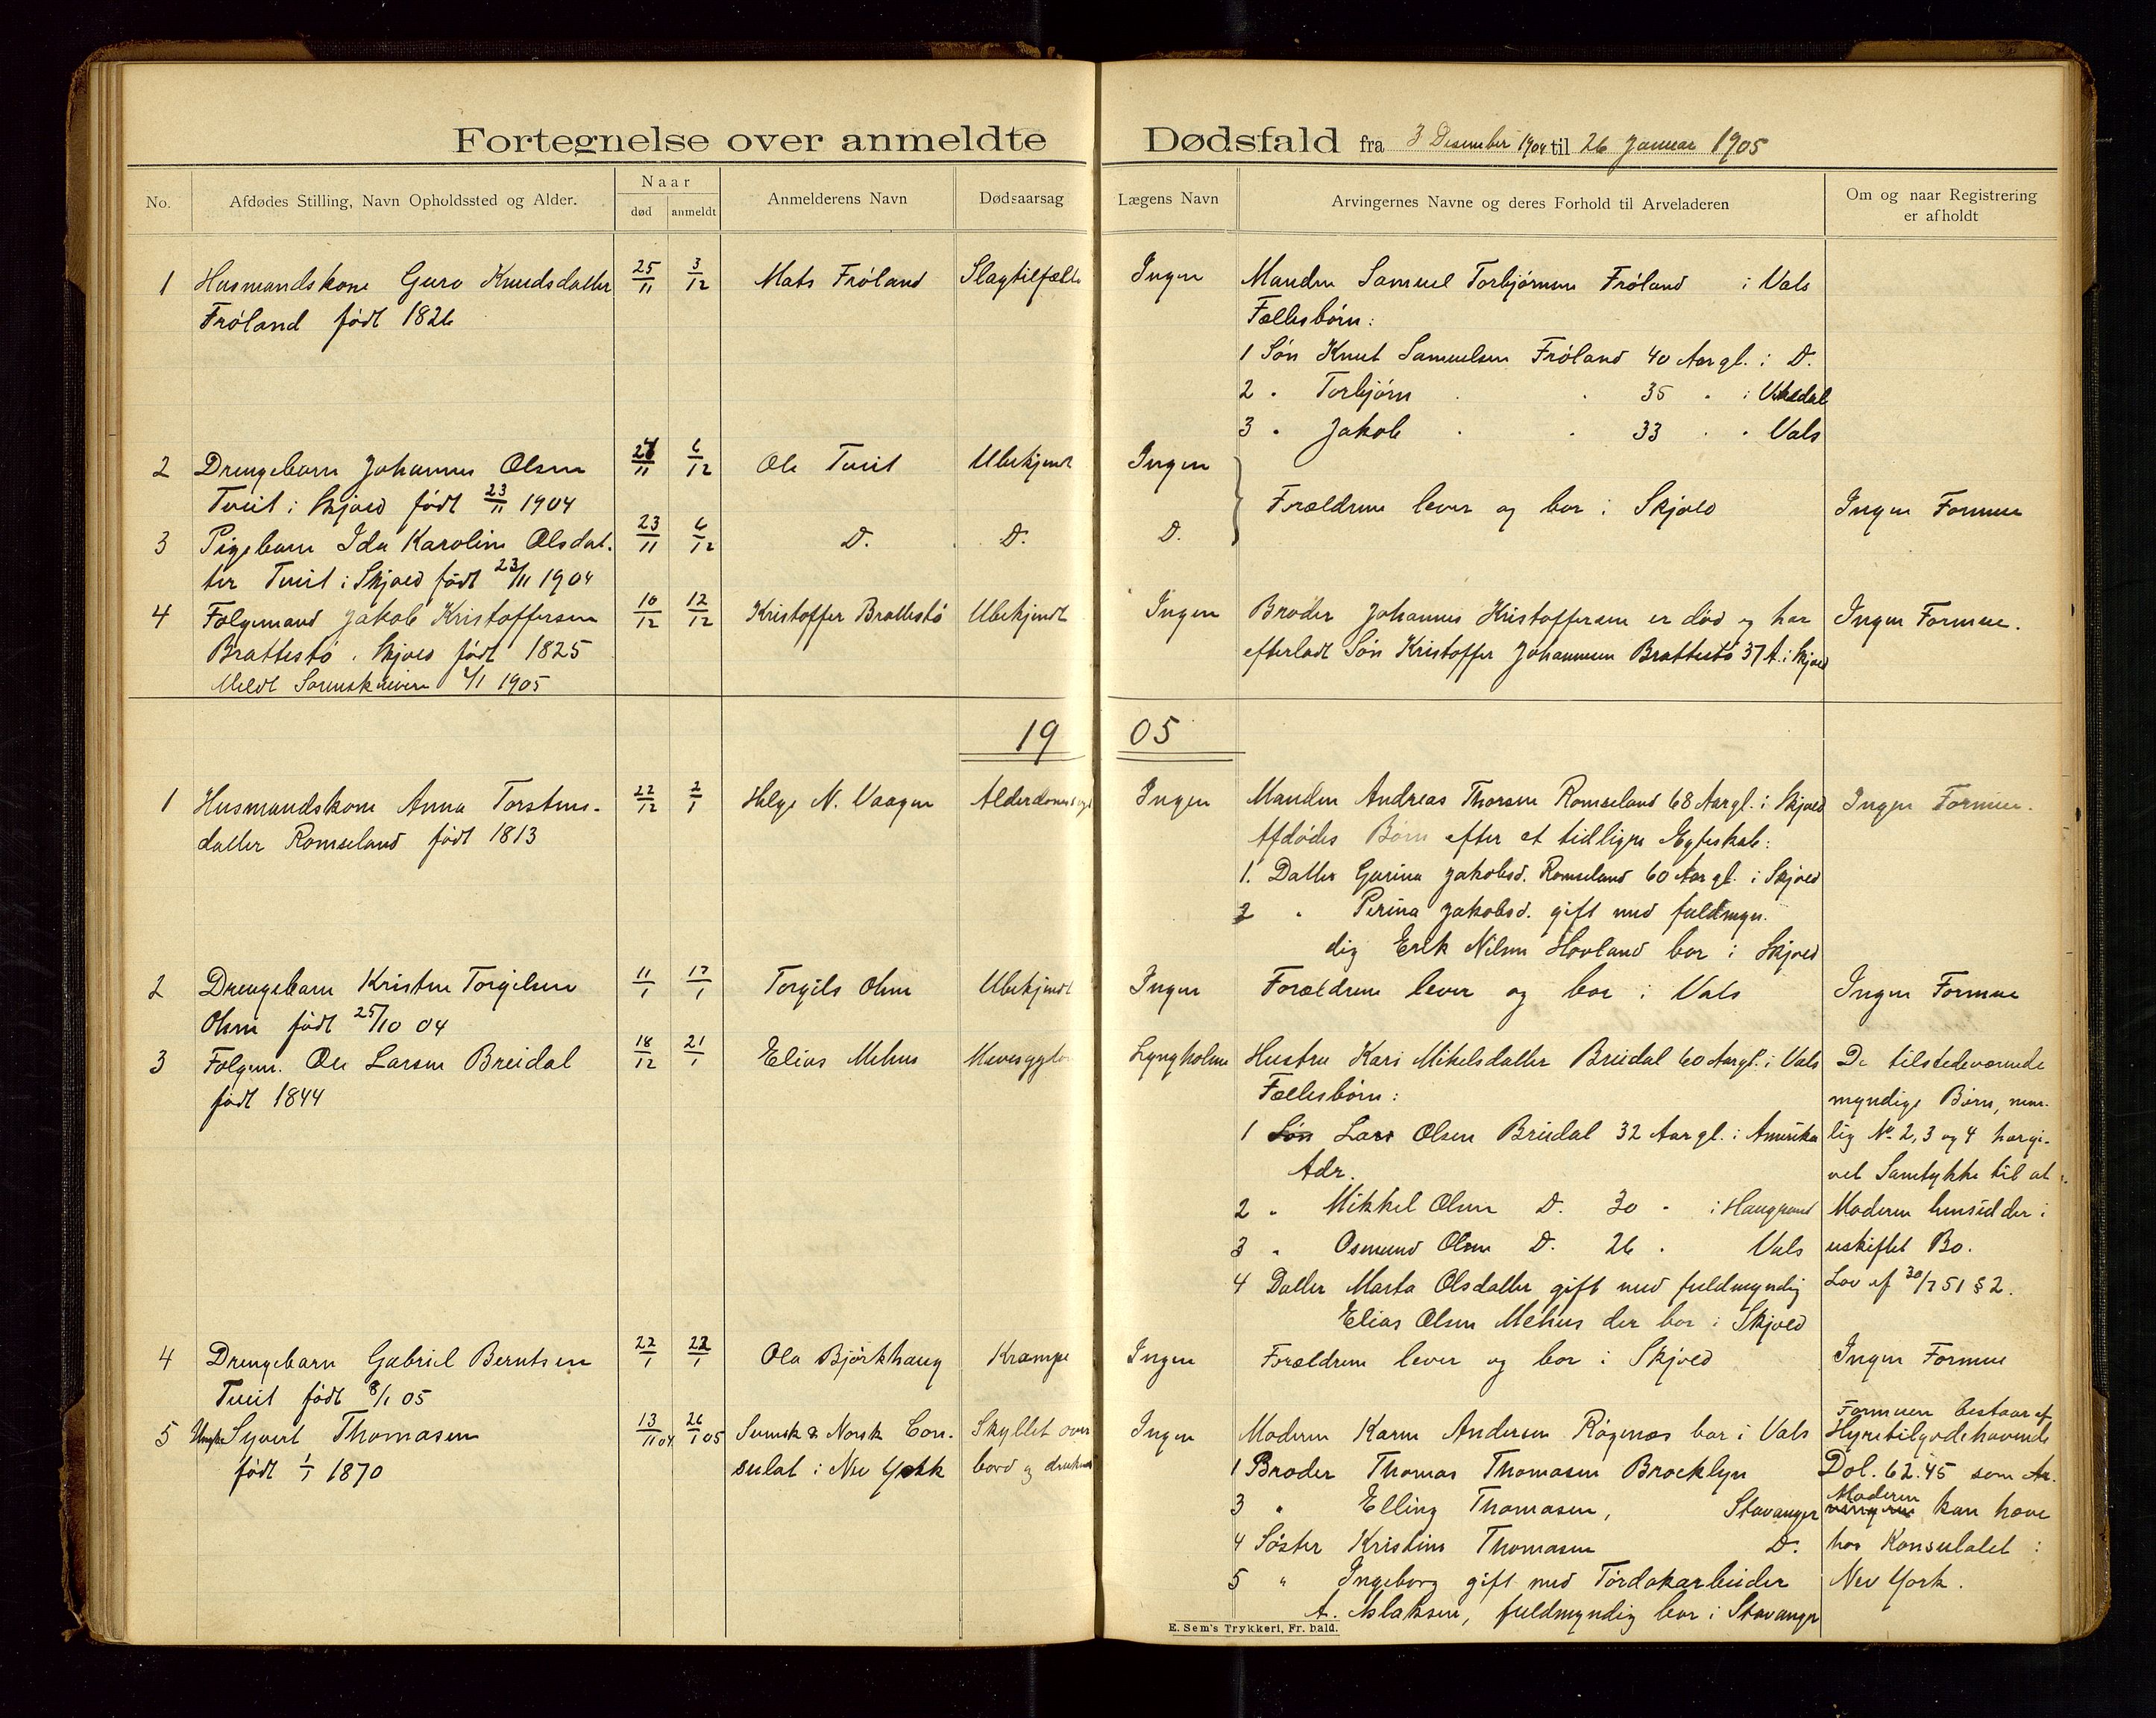 Fortegnelse over anmeldte Dødsfald fra 3 Desember 1904 til 26 Januar 1905
No. Afdødes Stilling, Navn Opholdssted og Alder. Naar død anmeldt Anmelderens Navn Dødsaarsag Lægens Navn Arvingernes Navne og deres Forhold til Arveladeren Om og naar Registrering er afholdt
1 Husmandskone Guro Knudsdatter 25/11 3/12 Mats Fröland Slagtilfælde Ingen Manden Samuel Torbjörnsen Fröland i Vats
Fröland födt 1826 Fællesbörn:
1 Sön Knut Samuelsen Fröland 40 Aar gl. i D.
2 " Torbjörn " " 35 " i Vikedal
3 " Jakob " " 33 " " Vats
2 Drengebarn Johannes Olsen 24/11 6/12 Ole Tveit Ubekjendt Ingen
Tveit i Skjold födt 23/11 1904 Forældrene lever og bor i Skjold Ingen Formue
3 Pigebarn Ida Karoline Olsdat- 23/11 6/12 D. D. D.
ter Tveit i Skjold födt 23/11 1904
4 Folgemand Jakob Kristoffersen 10/12 12/12 Kristoffer Brattestö Ubekjendt Ingen Broder Johannes Kristoffersen er död og har Ingen Formue.
Brattestö i Skjold födt 1825 efterladt Sön Kristoffer Johannesen Brattestö 37 A. i Skjold
Meldt Sorenskriveren 4/1 1905
1905
1 Husmandskone Anna Torstens- 22/12 2/1 Helge N. Vaagen Alderdomssvagh Ingen Manden Andreas Thorsen Romseland 68 Aar gl. i Skjold Ingen Formue.
datter Romseland födt 1813 Afdödes Börn efter et tidligere Egteskab:
1. Datter Gurina Jakobsd. Romseland 60 Aar gl. i Skjold
2 " Perina Jakobsd. gift med fuldmyn-
dig Erik Nilsen Hovland bor i Skjold
2 Drengebarn Kristen Torgilsen 11/1 17/1 Torgils Olsen Ubekjendt Ingen Forældrene lever og bor i Vats Ingen Formue
Olsen födt 25/10 04
3 Folgem. Ole Larsen Breidal 18/12 21/1 Elias Mehus Mavesygdo Lyngholm Hustru Kari Mikelsdatter Breidal 60 Aar gl. i Vats De tilstedeværende
födt 1844 Fællesbörn: myndige Börn, nem-
1 Sön Lars Olsen Breidal 32 Aar gl. i Amerika lig No 2, 3 og 4 har gi-
Adr. vet Samtykke til at
2 " Mikkel Olsen D. 30 " i Haugesund Moderen hensidder i
3 " Osmund Olsen D. 26 " Vats uskiftet Bo.
4 Datter Marta Olsdatter gift med fuldmyndig Lov af 30/7 51 § 2.
Elias Olsen Mehus der bor i Skjold
4 Drengebarn Gabriel Berntsen 22/1 22/1 Ola Björkhaug Krampe Ingen Forældrene lever og bor i Skjold Ingen Formue
Tveit födt 8/1 05 Formuen bestaar af
5 Ungk Syvert Thomasen 13/11 04 26/1 05 Svensk & Norsk Con- Skyllet over Ingen Moderen Karen Andersen Rögenæs bor i Vats Hyretilgodehavende
födt 1/1 1870 sulat i New York bord og druknet 1 Broder Thomas Thomasen Brocklyn Dol. 62.45 som Ar-
3 " Elling Thomasen, Stavanger vingerne Moderen kan hæve
4 Söster Kristine Thomasen D. hos Konsulatet i
5 " Ingeborg gift med Tördokarbeider New York.
A. Aslaksen, fuldmyndig bor i Stavanger
E. Sem's Trykkeri, Fr. hald.